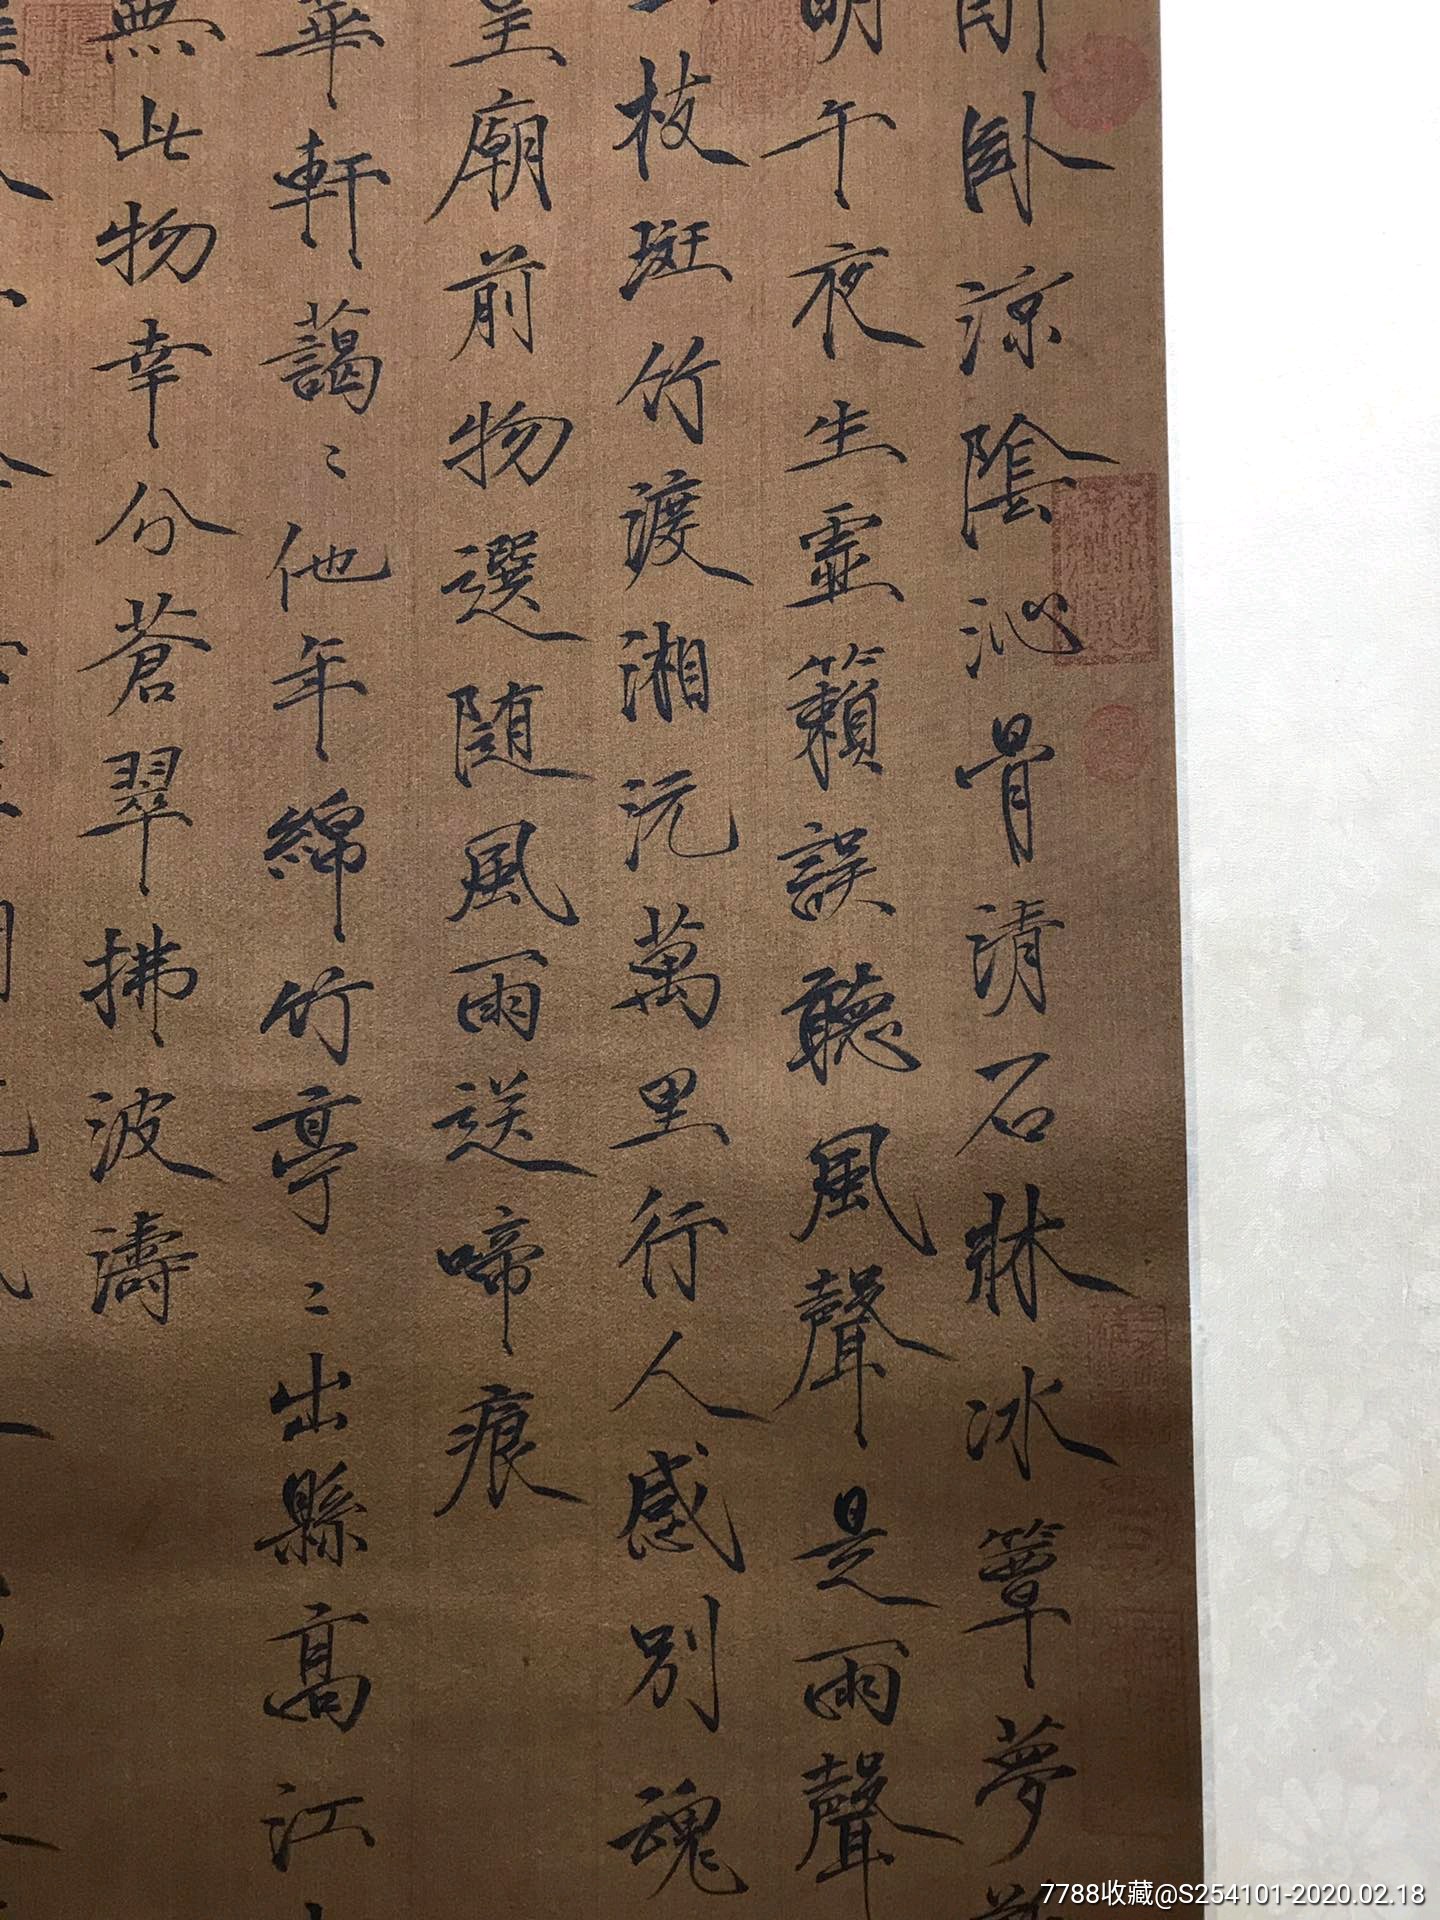 卧涼陰沁骨清石牀冰簟夢
明午夜生靈籟誤聽風聲是雨聲
枝斑竹渡湘沅萬里行人感別魂
廟前物選隨風雨送啼痕
華軒藹〻他年綿竹亭〻出縣高江
無此物幸分蒼翠拂波濤
7788收藏@S254101-2020.02.18